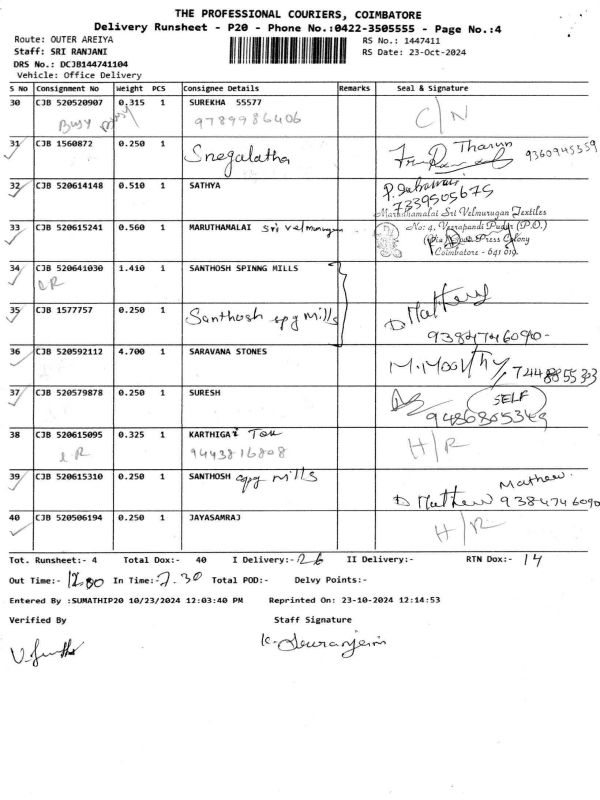 THE PROFESSIONAL COURIERS, COIMBATORE
Delivery Runsheet - P20 - Phone No.:0422-3505555 - Page No.:4
Route: OUTER AREIYA
RS No.: 1447411
Staff: SRI RANJANI
RS Date: 23-Oct-2024
DRS No.: DCJB144741104
Vehicle: Office Delivery
S No Consignment No Weight PCS Consignee Details Remarks Seal & Signature
30 CJB 520520907 0.315 1 SUREKHA 55577 C/N
Busy Busy 9789986406
31 CJB 1560872 0.250 1 Snegalatha Tharun 9360945359
32 CJB 520614148 0.510 1 SATHYA
7339505675
Marudhamalai Sri Velmurugan Textiles
33 CJB 520615241 0.560 1 MARUTHAMALAI Sri velmurugan No: 4, Veerapandi Pudur (P.O.)
Press Colony
Coimbatore - 641 019.
34 CJB 520641030 1.410 1 SANTHOSH SPINNG MILLS
35 CJB 1577757 0.250 1 Santhosh spg Mills D Mathew
9384746090-
36 CJB 520592112 4.700 1 SARAVANA STONES M.Moorthy, 7448855303
37 CJB 520579878 0.250 1 SURESH SELF
9486805349
38 CJB 520615095 0.325 1 KARTHIGAI H/R
9443816808
39 CJB 520615310 0.250 1 SANTHOSH spg mills Mathew.
D Mathew 9384746090
40 CJB 520506194 0.250 1 JAYASAMRAJ H/R
Tot. Runsheet:- 4 Total Dox:- 40 I Delivery:- 26 II Delivery:- RTN Dox:- 14
Out Time:- 12.00 In Time:- 7.30 Total POD:- Delvy Points:-
Entered By :SUMATHIP20 10/23/2024 12:03:40 PM Reprinted On: 23-10-2024 12:14:53
Verified By Staff Signature